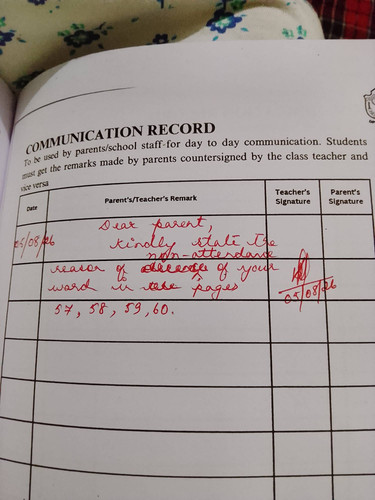 COMMUNICATION RECORD
To be used by parents/school staff for day to day communication. Students
must get the remarks made by parents countersigned by the class teacher and
vice versa
Date
Parent's/Teacher's Remark
Teacher's
Signature
Parent's
Signature
05/08/26
Dear parent,
Kindly state the
non-attendance
reason of of your
ward in pages
57, 58, 59, 60.
05/08/26